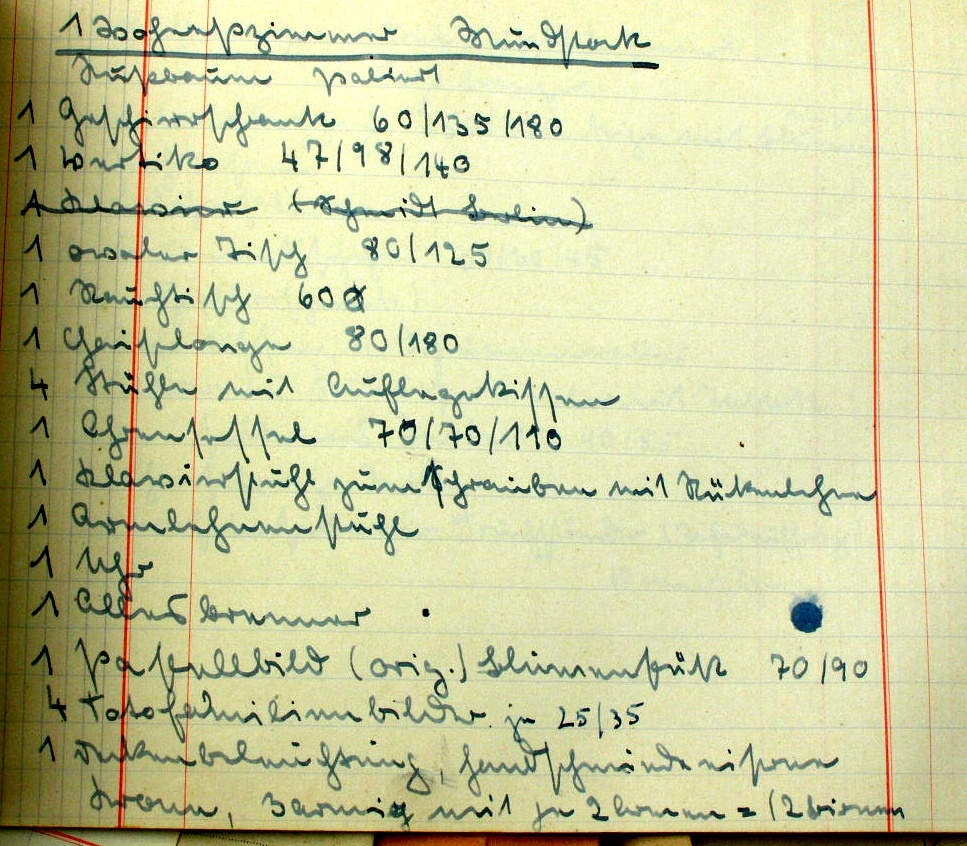 1 Wohnzimmer
Nußbaum poliert
1 Geschirrschrank 60/135/180
1 Vertiko 47/98/140
1 Klavier (Schmidt Berlin)
1 ovaler Tisch 80/125
1 Rauchtisch 60
1 Chaiselonge 80/180
4 Stühle mit Auflegekissen
1 Ohrensessel 70/70/110
1 Klavierstuhl zum Schrauben mit Rückenlehne
1 Armlehnenstuhl
1 Uhr
1 Allesbrenner
1 Pastellbild (orig.) Blumenstück 70/90
4 Fotofamilienbilder je 25/35
1 Deckenbeleuchtung, handschmiedeeiserne
Krone, 3armig mit je 2 =